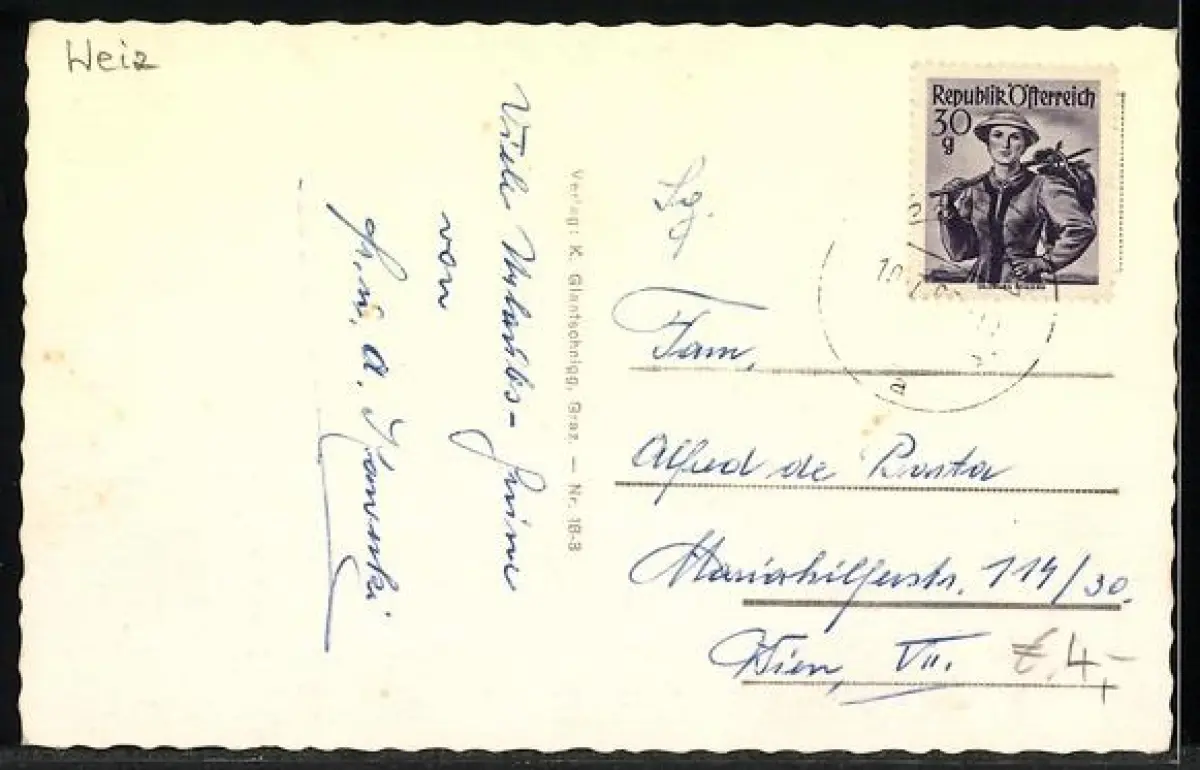 Weiz
Republik Österreich
30
g
Viele Urlaubs-
von
A.
Verlag: K. Glantschnigg, Graz. – Nr. 18-8
Fam.
Alfred de
Mariahilferstr. 114/30.
Wien, VII.
€ 4,-
a